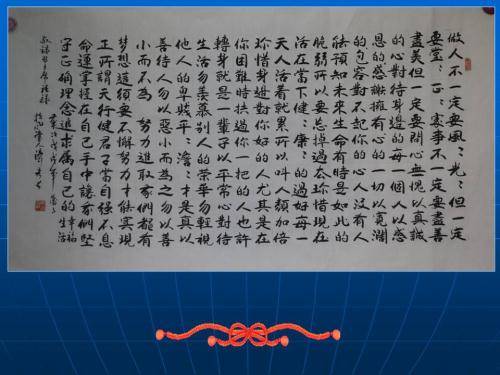 做人不一定要風〻光〻但一定
要堂〻正〻處事不一定要盡善
盡美但一定要問心無愧以真誠
的心對待身邊的每一個人以感
恩的感謝擁有心的一切以寬闊
的包容對不起你的心人没有人
能預知未來生命有時是如此的
脆弱所以要忘掉過去珍惜現在
活在當下健〻康〻的過好每一
天人活着就所以叫人類加倍
珍惜身邊對你好的人尤其是在
你困難時扶過你一把的人也許
轉身就是一輩子以平常心對待
生活勿羡慕别人的榮華勿輕視
他人的卑贱平〻澹〻才是真以
善待人勿以惡小而為之勿以善
小而不為努力進取家們都有
夢想追須要不懈努力才能实現
正所謂天行健君子當自强不息
命運掌控在自己手中讓家們堅
守正确理念追求属自己的幸福生活